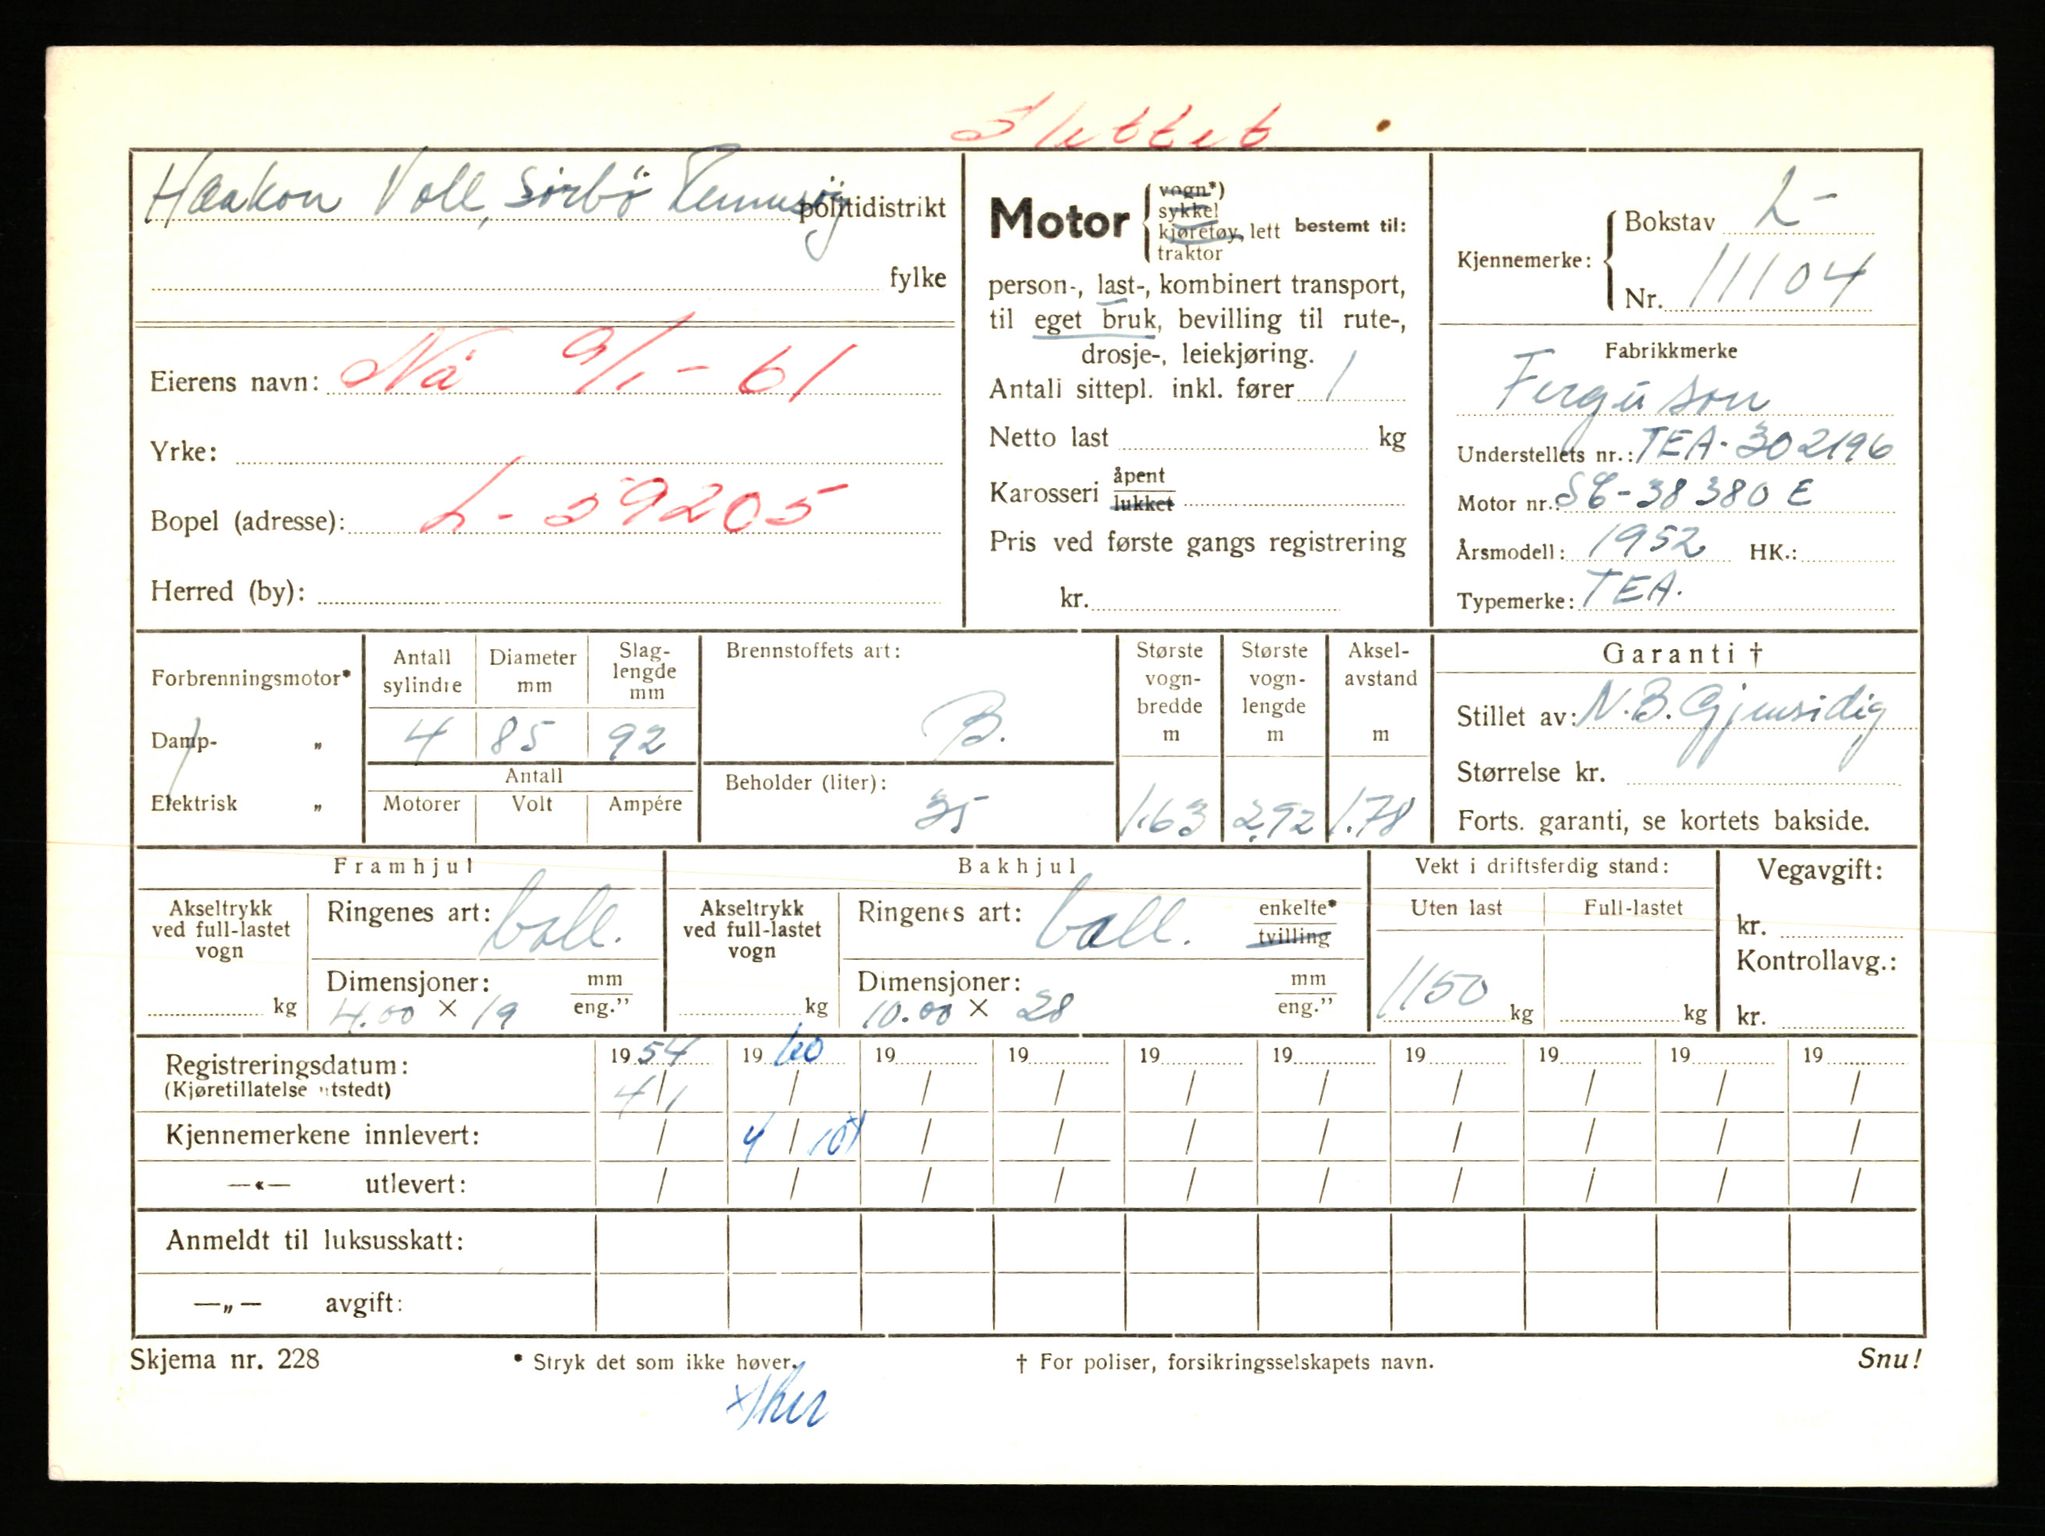 Slettet
Haakon Voll, Sörbö Rennesöy politidistrikt
fylke
Eierens navn: Nå 9/1-61
Yrke:
Bopel (adresse): L-59205
Herred (by):
Motor { vogn*) sykkel kjøretøy, lett traktor bestemt til:
person-, last-, kombinert transport,
til eget bruk, bevilling til rute-,
drosje-, leiekjøring.
Antall sittepl. inkl. fører 1
Netto last kg
Karosseri åpent lukket
Pris ved første gangs registrering
kr.
Kjennemerke: { Bokstav L-
Nr. 11104
Fabrikkmerke
Ferguson
Understellets nr.: TEA-302196
Motor nr.: SC-38380 E
Årsmodell: 1952 HK.:
Typemerke: TEA.
Forbrenningsmotor*
Damp- „
Elektrisk „
Antall sylindre Diameter mm Slag-lengde mm
4 85 92
Antall
Motorer Volt Ampére
Brennstoffets art:
B.
Beholder (liter):
35
Største vogn-bredde m
1.63
Største vogn-lengde m
2.92
Aksel-avstand m
1.78
Garanti †
Stillet av: N.B. Gjensidig
Størrelse kr.
Forts. garanti, se kortets bakside.
Framhjul
Akseltrykk ved full-lastet vogn
kg
Ringenes art: ball.
Dimensjoner: mm eng."
4.00 × 19
Bakhjul
Akseltrykk ved full-lastet vogn
kg
Ringenes art: ball. enkelte* tvilling
Dimensjoner: mm eng."
10.00 × 28
Vekt i driftsferdig stand:
Uten last Full-lastet
1150 kg kg
Vegavgift:
kr.
Kontrollavg.:
kr.
Registreringsdatum: 19 54 19 60 19 19 19 19 19 19 19 19
(Kjøretillatelse utstedt) 4/1 / / / / / / / / /
Kjennemerkene innlevert: / 4/10 / / / / / / / /
—«— utlevert: / / / / / / / / / /
Anmeldt til luksusskatt:
—„— avgift:
Skjema nr. 228 * Stryk det som ikke høver. † For poliser, forsikringsselskapets navn. Snu!